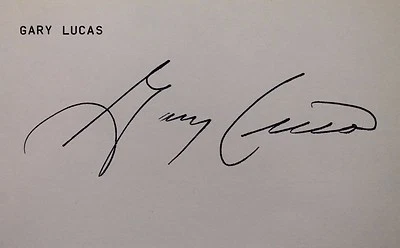 GARY LUCAS
Gary Lucas